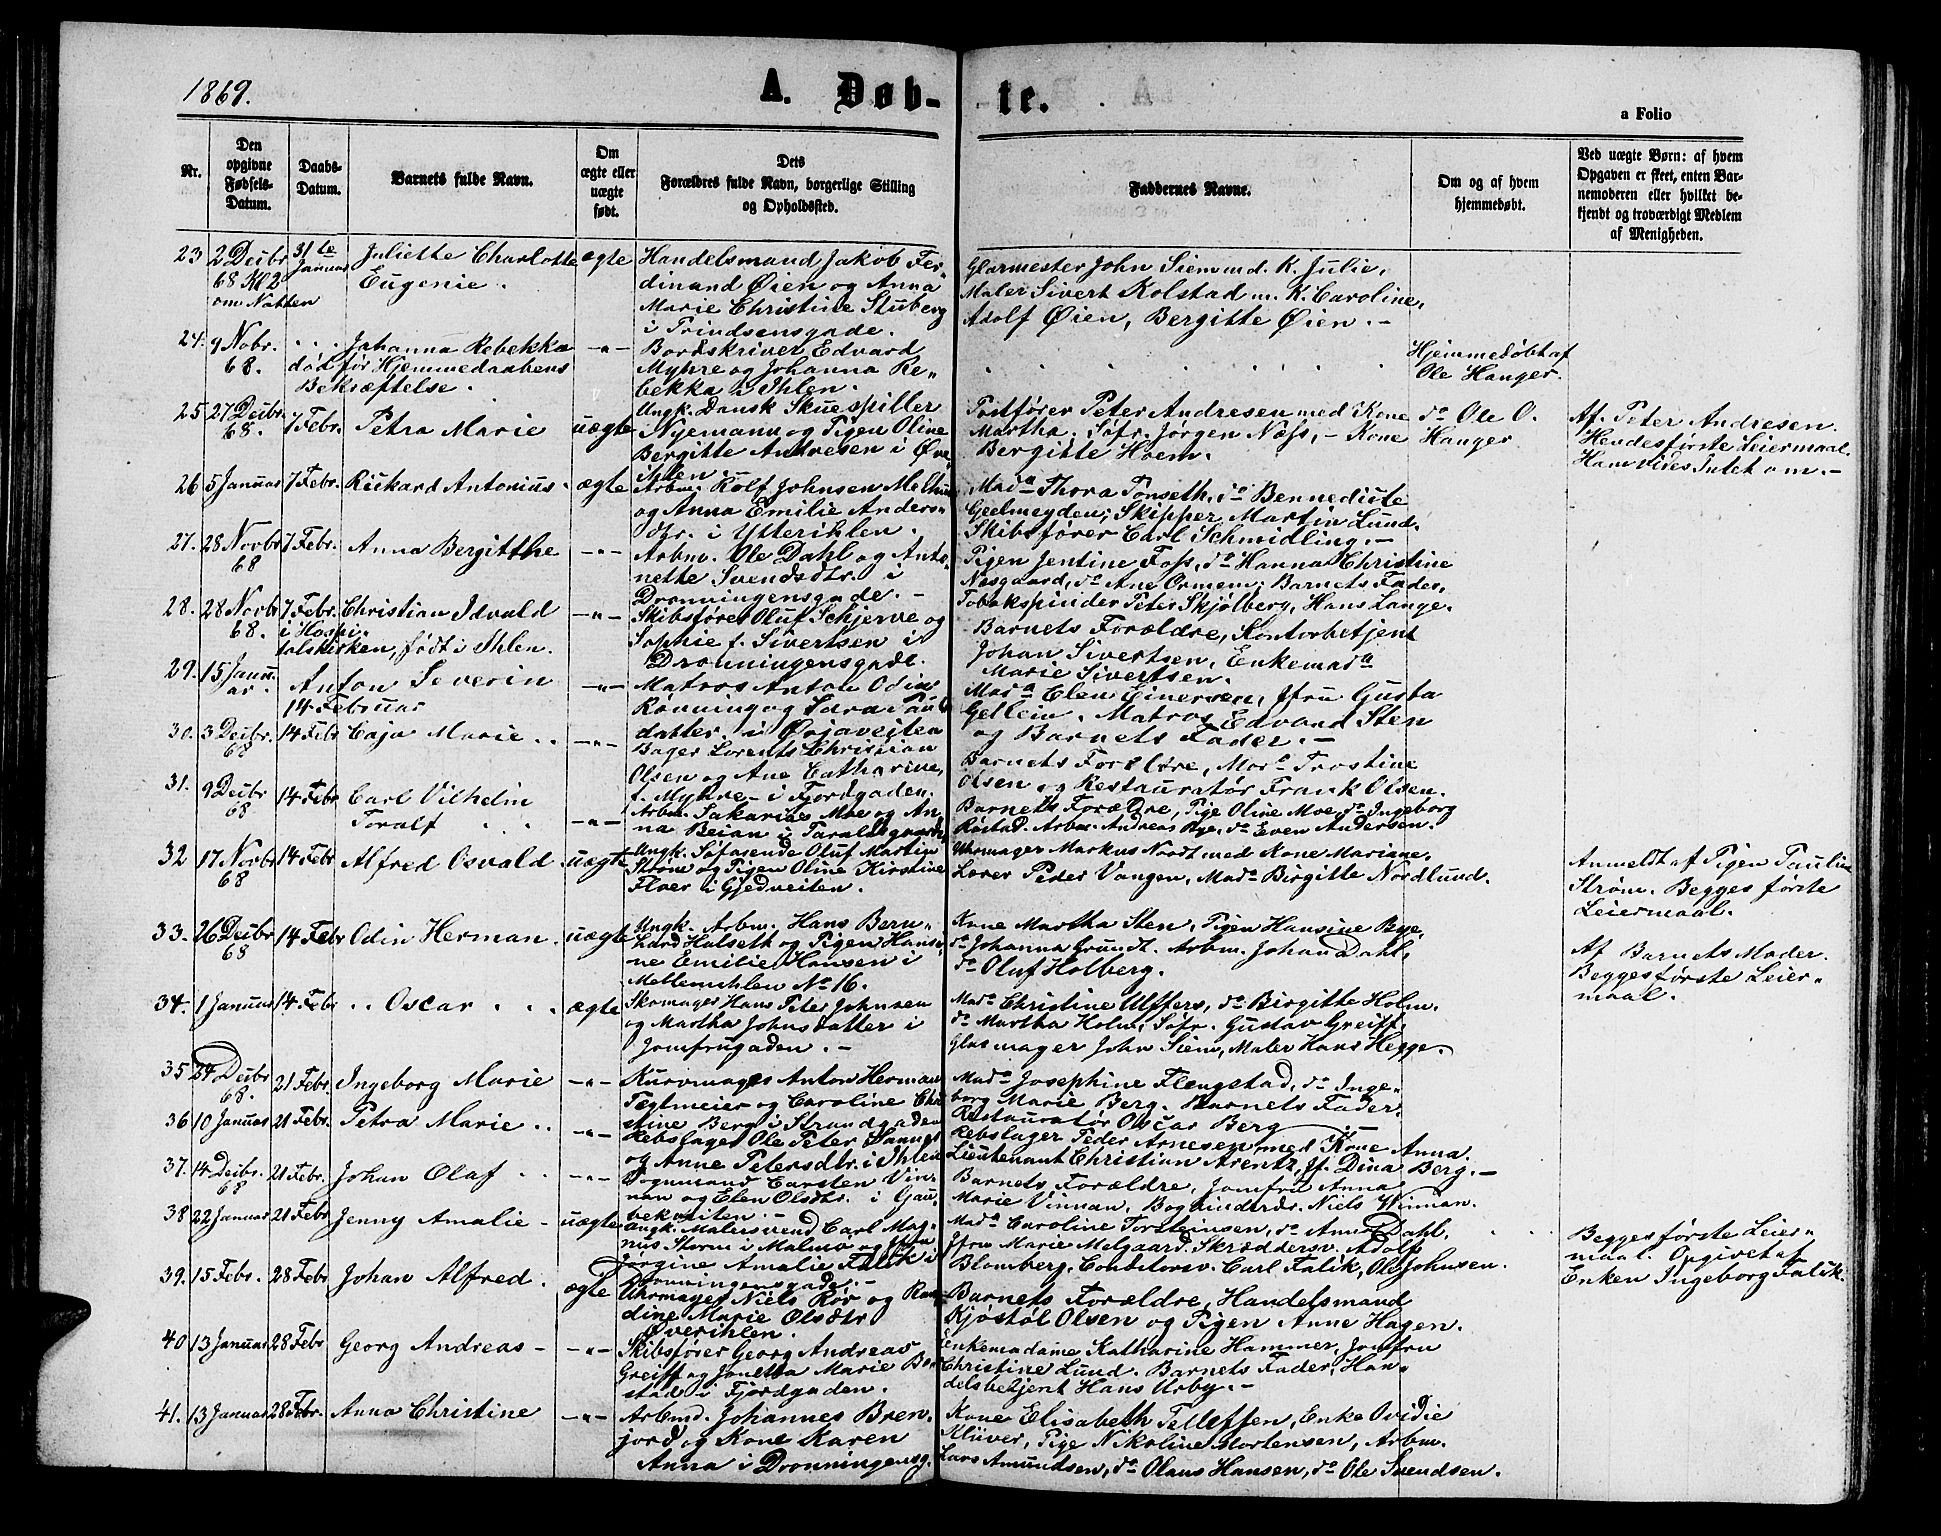 1869.
A. Døb-
te.
a Folio
Nr.
Den opgivne Fødsels-Datum.
Daabs-Datum.
Barnets fulde Navn.
Om ægte eller uægte født.
Dets Forældres fulde Navn, borgerlige Stilling og Opholdssted.
Faddernes Navne.
Om og af hvem hjemmedøbt.
Ved uægte Børn: af hvem Opgaven er skeet, enten Barnemoderen eller hvilket bekjendt og troværdigt Medlem af Menigheden.
23 2 Decbr 68 Kl 2 om Natten
31te Januar
Juliette Charlotte Eugenie.
ægte
Handelsmand Jakob Fer-
dinand Øien og Anna
Marie Christine Stuberg
i Prindsensgade.
Glarmester John Siem m. K. Julie,
Maler Sivert Kolstad m. K. Caroline,
Adolf Øien, Bergitte Øien. -
24. 9 Nobr. 68.
Johanna Rebekka
død før Hjemmedaabens
Bekræftelse.
-"-
Bordskriver Edvard
Myhre og Johanna Re-
bekka i Ihlen.
Hjemmedøbt af
Ole Hanger.
25 27 Decbr. 68.
7 Febr.
Petra Marie
uægte
Ungk. Dansk Skuespiller
Nyemann og Pigen Oline
Bergitte Andresen i Øv-
ihlen.
Postfører Peter Andresen med Kone
Martha. Søfr. Jørgen Næss, - Kone
Bergitte Hoem.
do Ole O.
Hanger
Af Peter Andresen.
Hendes første Leiermaal.
Ham vides Intet om. -
26 5 Januar 7 Febr.
Rickard Antonius.
ægte
Arbm. Rolf Johnsen Melhuus
og Anna Emilie Anders-
dtr. i Ytterihlen.
Mada Thora Tonseth, do Bennedicte
Geelmeyden; Skipper Martin Lund.
Skibsfører Carl Schmidling. -
27. 28 Novbr 68 7 Febr.
Anna Bergitthe
-"-
Arbm. Ole Dahl og Anto-
nette Svendsdtr. i
Dronningensgade. -
Pigen Jentine Foss, do Hanna Christine
Næsgaard, do Ane Ormem; Barnets Fader,
Tobakspinder Peter Skjølberg, Hans Lange.
28. 28 Novb 68. 7 Febr.
i Hospi-
talskirken, født i Ihlen.
Christian Idvald
-"-
Skibsfører Oluf Schjerve og
Sophie f. Sivertsen i
Dronningensgade.
Barnets Forældre, Kontorbetjent
Johan Sivertsen, Enkemada
Marie Sivertsen.
29. 15 Janu-
ar.
Anton Severin
14 Februar
-"-
Matros Anton Odin
Rønning og Sara Pauls
datter. i Øvjaveiten
Mada Elen Einersen, Jfru Gusta
Gellein. Matros Edvard Sten
og Barnets Fader. -
30. 3 Decbr. 68 14 Febr
Caja Marie
-"-
Bager Lorents Christian
Olsen og Ane Catharine,
f. Myhre - i Fjordgaden.
Barnets Forældre, Mada Trostine
Olsen og Restauratør Frank Olsen.
31. 9 Decbr 68 14 Febr
Carl Vilhelm
Toralf
-"-
Arbm. Sakarias Moe og An-
na Beian i Taraldsgaard.
Barnets Forældre, Pige Oline Moe, do Ingeborg
Røstad. Arbm. Andreas Rye, do Even Andersen.
32 17 Novbr 68 14 Febr
Alfred Osvald
uægte
Ungk. Søfarende Oluf Martin
Strøm og Pigen Oline Kirstine
Floer i Gjedveiten.
Uhrmager Markus Nordt med Kone Mariane.
Lærer Peder Vangen, Mada Birgitte Nordlund.
Anmeldt af Pigen Pauline
Strøm. Begges første
Leiermaal.
33. 26 Decbr 68 14 Febr
Odin Herman.
uægte
Ungk. Arbm. Hans Bern-
hard Halseth og Pigen Hansi-
ne Emilie Hansen i
Mellemihlen No 16.
Kone Martha Sten, Pigen Hansine Bye,
do Johanna Grundt. Arbm. Johan Dahl,
do Oluf Holberg.
Af Barnets Moder.
Begges første Leier-
maal.
34. 1 Januar 14 Febr
Oscar
ægte
Skomager Hans Peter Johnsen
og Martha Johnsdatter i
Jomfrugaden. -
Mada Christine Ulffers, do Birgitte Holm.
do Martha Holm, Søfr. Gustav Greiff,
Glasmager John Siem, Maler Hans Hegge.
35 24 Decbr 68. 21 Febr.
Ingeborg Marie
-"-
Kurvmager Anton Herman
Tegtmeier og Caroline Chri-
stine Berg i Strandgaden
Mada Josephine Flengstad, do Inge-
borg Marie Berg. Barnets Fader,
Restauratør Oscar Berg
36 10 Januar 21 Febr.
Petra Marie
-"-
Rebslager Ole Peter
og Anne Petersdtr. i Ihlen
Rebslager Peder Arnesen med Kone Anna.
Lieutenant Christian Arentz, Jf. Dina Berg. -
37. 14 Decbr. 68 21 Febr.
Johan Olaf
-"-
Vognmand Carsten Vin-
nan og Elen Olsdtr. i Gau-
bekveiten. -
Barnets Forældre, Jomfru Anna
Marie Vinnan, Bogbindersv. Niels Winnan.
38 22 Januar 21 Febr.
Jenny Amalie -
uægte
Ungk. Malersvend Carl Mag-
nus Storm i Malmø og Jfru
Jørgine Amalie Falik i
Dronningensgade. -
Mada Caroline Torsteinsen, do Anne Dahl,
Jfru Marie Melgaard. Skræddersv. Adolf
Blomberg, Conditorsv. Carl Falik, Ole Johnsen.
Begges første Leier-
maal. Opgivet af
Enken Ingeborg Falik.
39. 15 Febr. 28 Febr
Johan Alfred.
ægte
Uhrmager Niels Rør og Ran-
dine Marie Olsdtr
Øverihlen.
Barnets Forældre, Handelsmand
Kjøstøl Olsen og Pigen Anne Hagen.
40 13 Januar 28 Febr
Georg Andreas -
-"-
Skibsfører Georg Andreas
Greiff og Jonetta Marie Bor-
stad i Fjordgaden.
Enkemadame Katharine Hammer, Jomfru
Christine Lund. Barnets Fader, Han-
delsbetjent Hans Urby. -
41. 13 Januar 28 Febr.
Anna Christine
-"-
Arbmd. Johannes Bren-
jord og Kone Karen
Anna i Dronningensg.
Kone Elisabeth Telleffen, Enke Ovidie
Klüver, Pige Nikoline Mortensen, Arbm.
Lars Amundsen, do Olaus Hansen, do Ole Svendsen.